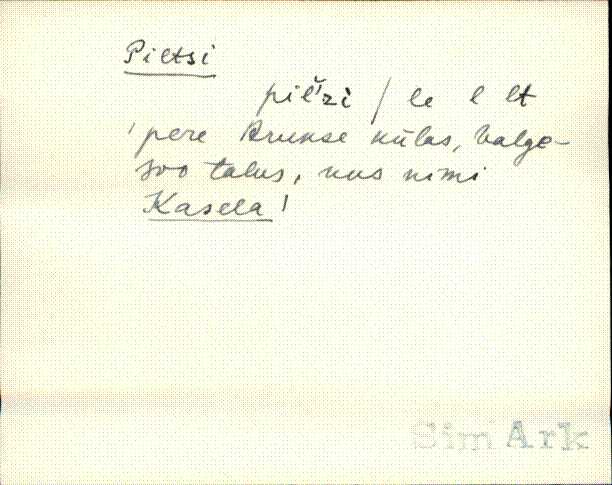 Piltsi
pil'zi / le l lt
'pere Arukse külas, Valge-
soo talus, uus nimi
Kasela'
Sim Ark